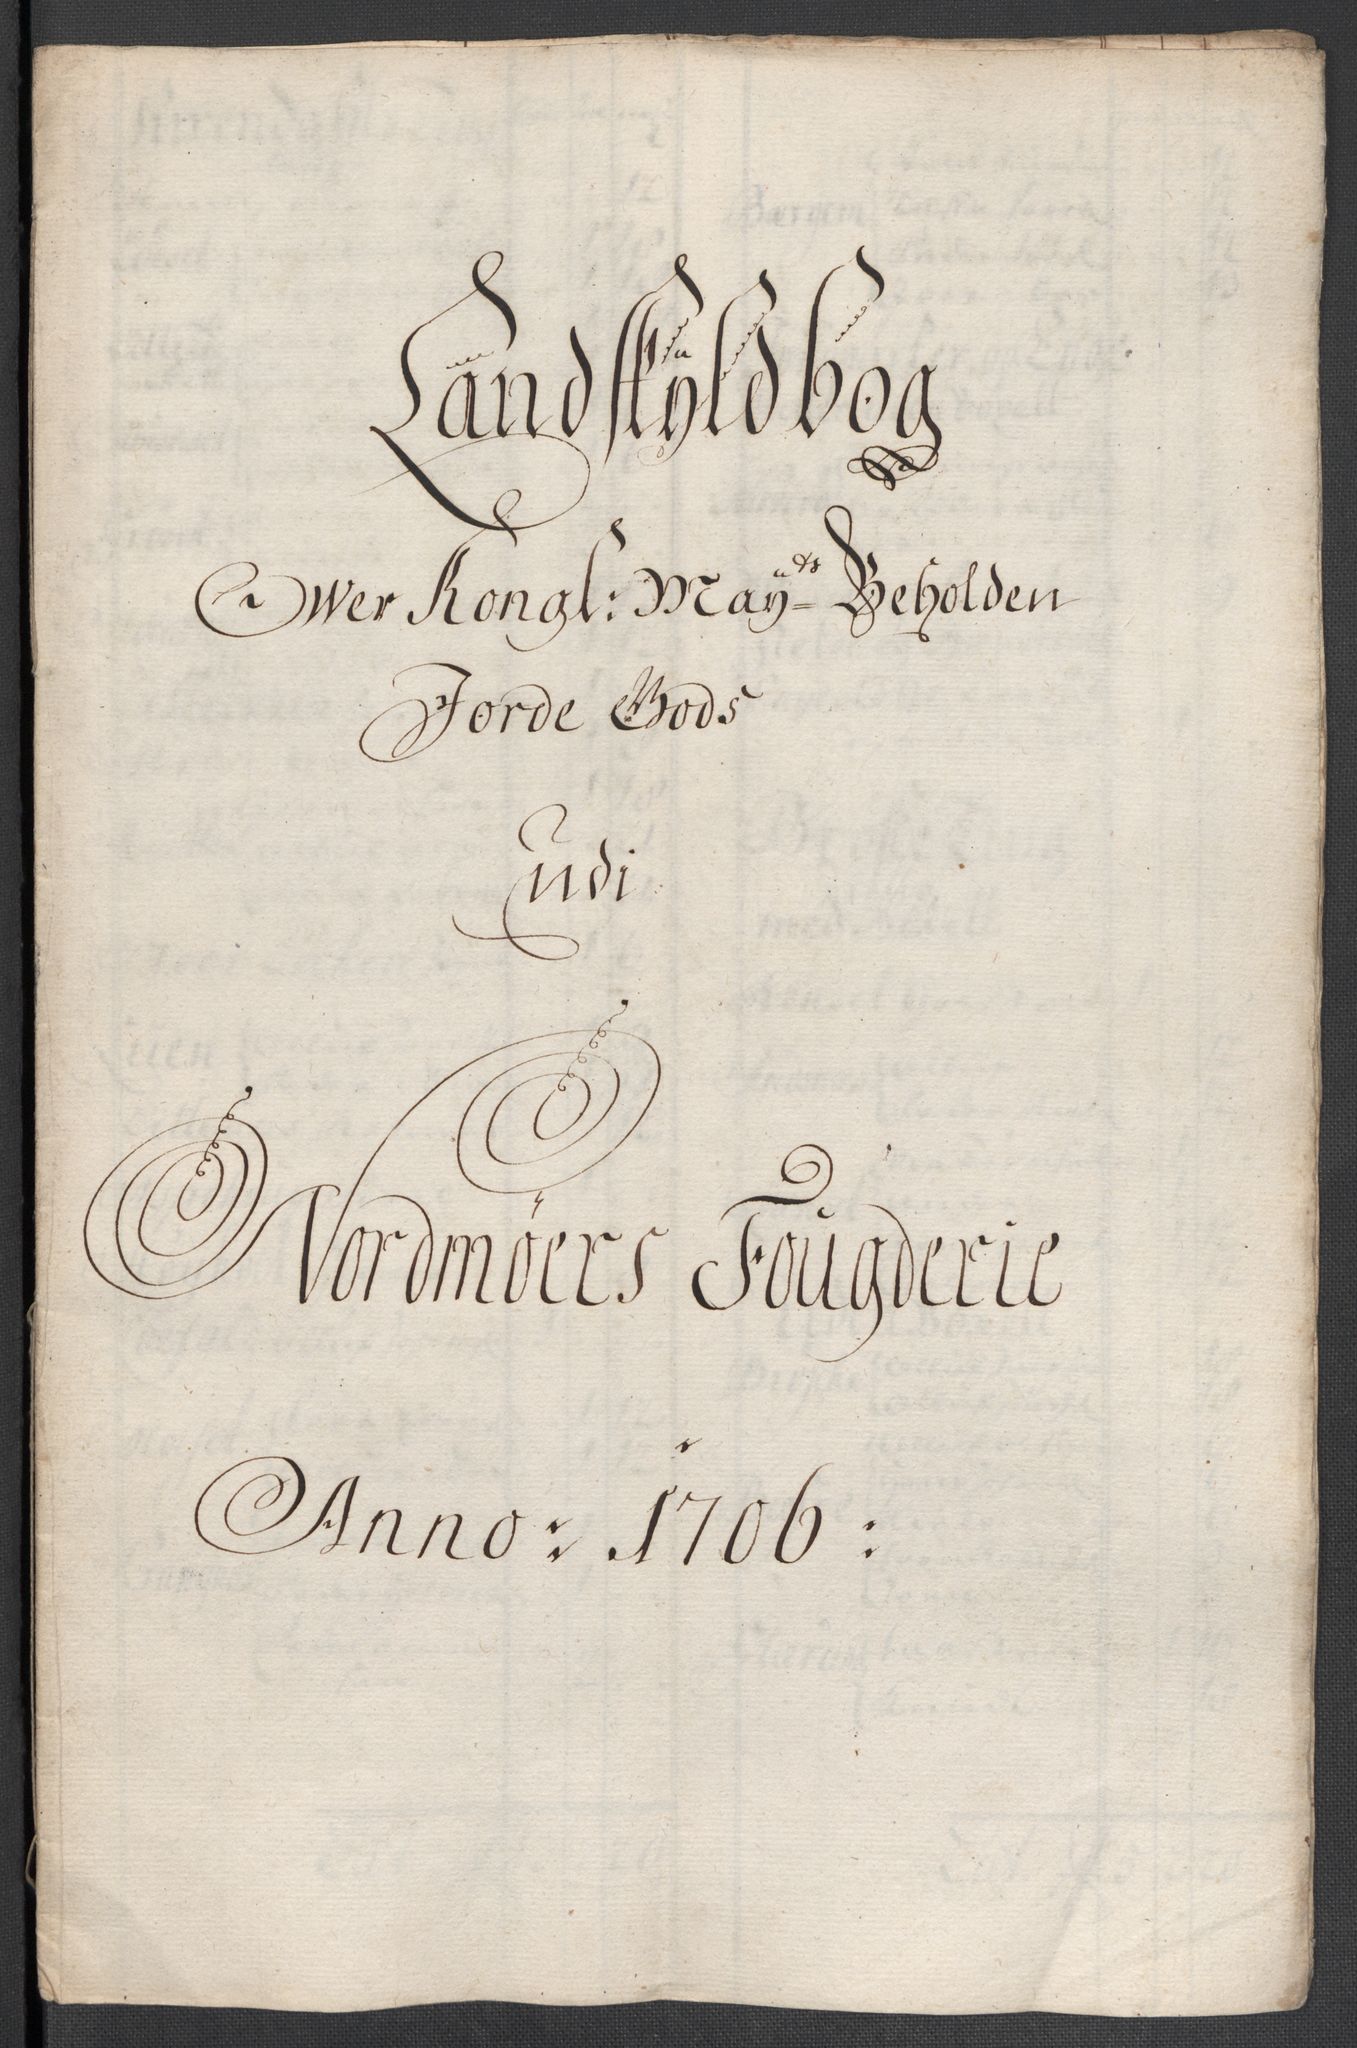 Landskyldbog
Ower Kongl: Mayts Beholden
Jorde Gods
Eudi
Nordmöers Fougderie
Anno: 1706: